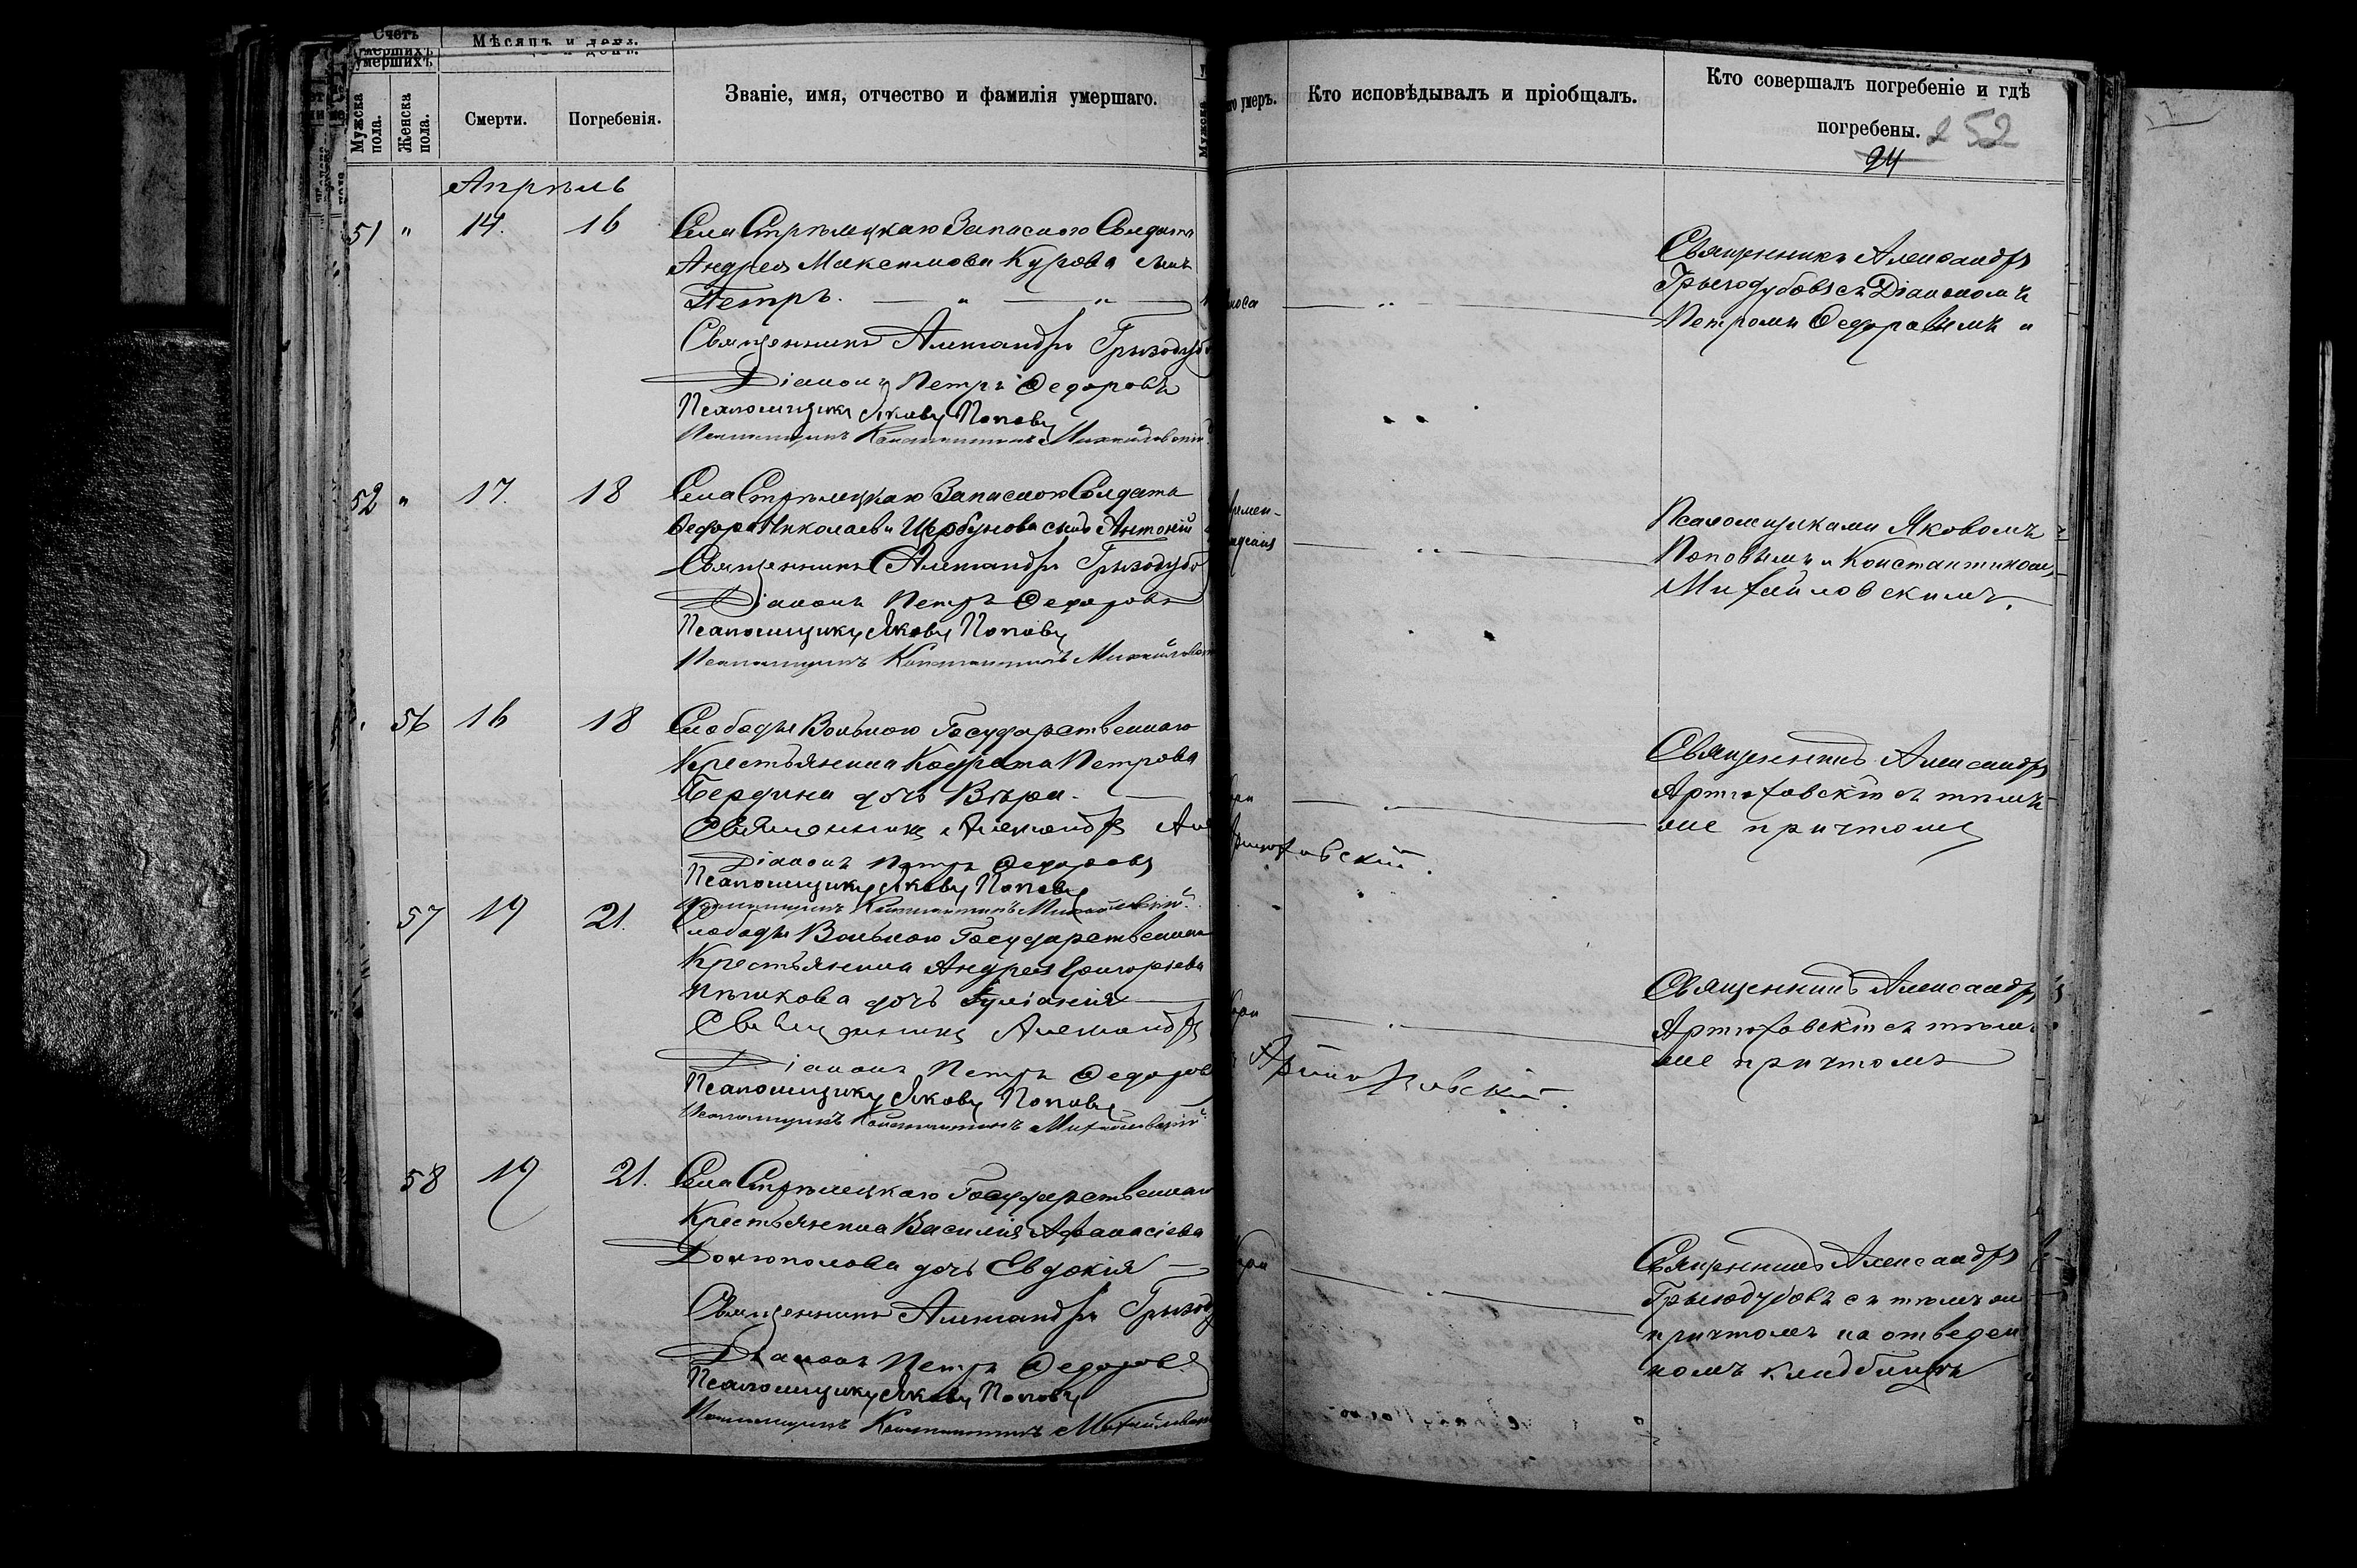 Счетъ умершихъ.
Мѣсяцъ и день.
Мужска пола.
Женска пола.
Смерти.
Погребенія.
Званіе, имя, отчество и фамилія умершаго.
умеръ.
Кто исповѣдывалъ и пріобщалъ.
Кто совершалъ погребеніе и гдѣ
погребены.
252
24
Апрѣль
51 " 14. 16
Села Стрѣлецкаго Запаснаго Солдата
Андрея Максимова Курова сынъ
Петръ.
Священникъ Александръ Грызодубо
Діаконъ Петръ Федоровъ
Псаломщикъ Яковъ Поповъ
Псаломщикъ Константинъ Михайловскій
Священникъ Александръ
Грызодубовъ съ Діакономъ
Петромъ Федоровымъ и
52 " 17. 18
Села Стрѣлецкаго Запаснаго Солдата
Федора Николаева Щербунова сынъ Антоній
Священникъ Александръ Грызодубо
Діаконъ Петръ Федоровъ
Псаломщикъ Яковъ Поповъ
Псаломщикъ Константинъ Михайловск
Псаломщиками Яковомъ
Поповымъ и Константиномъ
Михайловскимъ.
56 16 18
Слободы Вольного Государственнаго
Крестьянина Кодрата Петрова
Бердина дочь Вѣра.
Священникъ Александръ Ар
тюховскій.
Діаконъ Петръ Федоровъ
Псаломщикъ Яковъ Поповъ
Псаломщикъ Константинъ Михайловскій
Священникъ Александръ
Артюховскій съ тѣмъ
же причтомъ
57 19 21.
Слободы Вольного Государственнаго
Крестьянина Андрея Григорьева
дочь Іуліанія
Священникъ Александръ
Артюховскій.
Діаконъ Петръ Федоров
Псаломщикъ Яковъ Поповъ
Псаломщикъ Константинъ Михайловскій
Священникъ Александръ
Артюховскій съ тѣмъ
же причтомъ
58 19 21.
Села Стрѣлецкаго Государственнаго
Крестьянина Василія Афанасіева
Долгополова дочь Евдокія
Священникъ Александръ Грызод
Діаконъ Петръ Федоровъ
Псаломщикъ Яковъ Поповъ
Псаломщикъ Константинъ Михайловск
Священникъ Александръ
Грызодубовъ съ тѣмъ же
причтомъ на отведен
номъ кладбищѣ